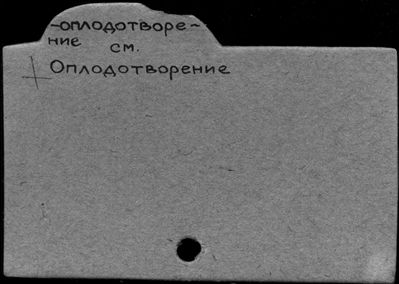 -оплодотворе-
ние см.
Оплодотворение